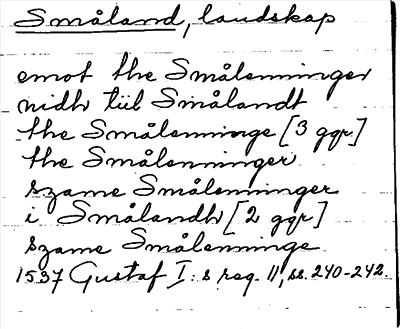 Småland, landskap
emot the Smålenninger
nidh tiil Smålandt
the Smålenninge [3 ggr]
the Smålenninger
szame Smålenninger
i Smålandh [2 ggr]
szame Smålenninge
1537 Gustaf I:s reg. 11, ss. 240-242.